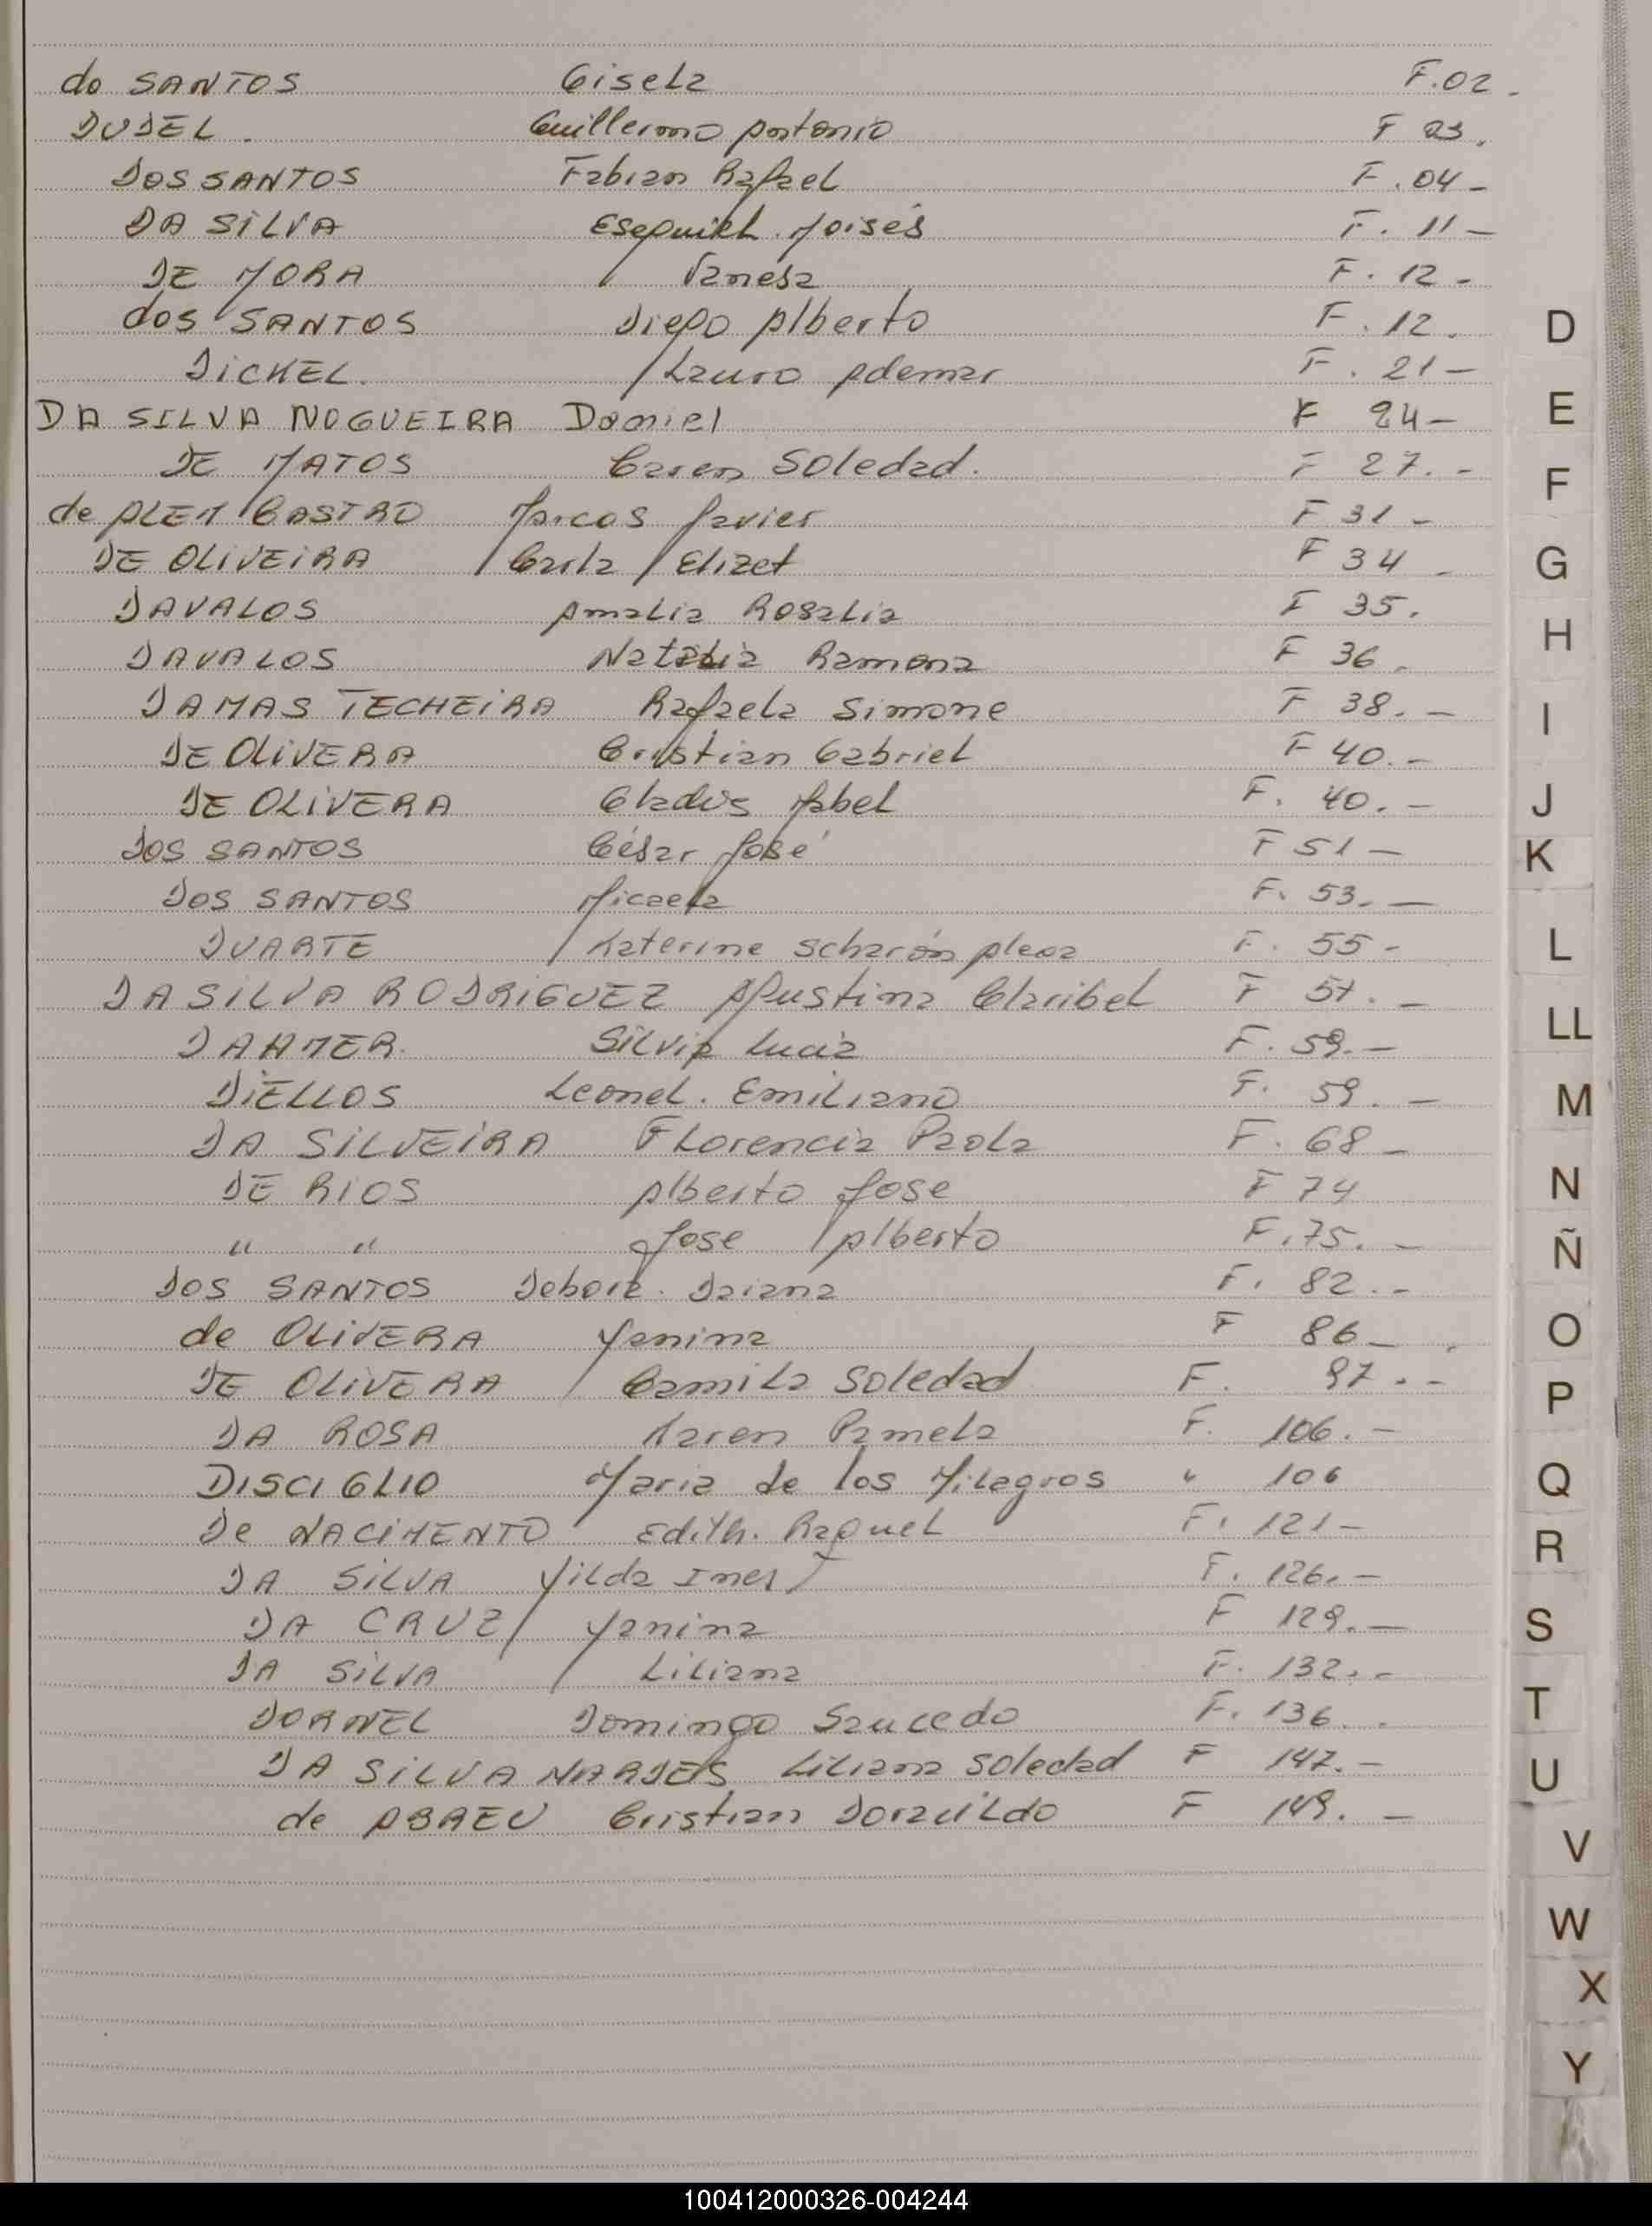 do SANTOS Gisela F.02.
DUDEL. Guillermo Antonio F 03.
DOS SANTOS Fabian Rafael F.04-
DA SILVA Esequiel Moisés F. 11-
DE MORA Vanesa F. 12-
dos SANTOS Diego Alberto F. 12.
DICKEL. Lauro Ademar F. 21-
DA SILVA NOGUEIRA Daniel F 24-
DE MATOS Caren Soledad. F 27.-
de ALEM CASTRO Marcos Javier F 31-
DE OLIVEIRA Carla Elizet F 34-
DAVALOS Amalia Rosalia F 35.
DAVALOS Natalia Ramona F 36.
DAMAS TECHEIRA Rafaela Simone F 38.-
DE OLIVERA Cristian Gabriel F 40.-
DE OLIVERA Gladis Mabel F. 40.-
DOS SANTOS César José F 51-
DOS SANTOS Micaela F. 53.-
DUARTE Katerine Scharón F. 55-
DA SILVA RODRIGUEZ Agustina Claribel F 57.-
DAHMER. Silvia Lucia F. 59.-
DIELLOS Leonel. Emiliano F. 59.-
DA SILVEIRA Florencia Paola F. 68-
DE RIOS Alberto Jose F 74
" " Jose Alberto F.75.-
DOS SANTOS Debora. Daiana F. 82.-
de OLIVERA Yanina F 86-
DE OLIVERA Camila Soledad F. 97.-
DA ROSA Karen Pamela F. 106.-
DISCIGLIO Maria de los Milagros " 106
De NACIMENTO Edith. Raquel F. 121-
DA SILVA Yilda Ines F. 126.-
DA CRUZ Yanina F 129.-
DA SILVA Liliana F. 132.-
DORNEL Domingo Saucedo F. 136.-
DA SILVA NARDES Liliana Soledad F 147.-
de ABREU Cristian Doraildo F 149.-
D
E
F
G
H
I
J
K
L
LL
M
N
Ñ
O
P
Q
R
S
T
U
V
W
X
Y
100412000326-004244